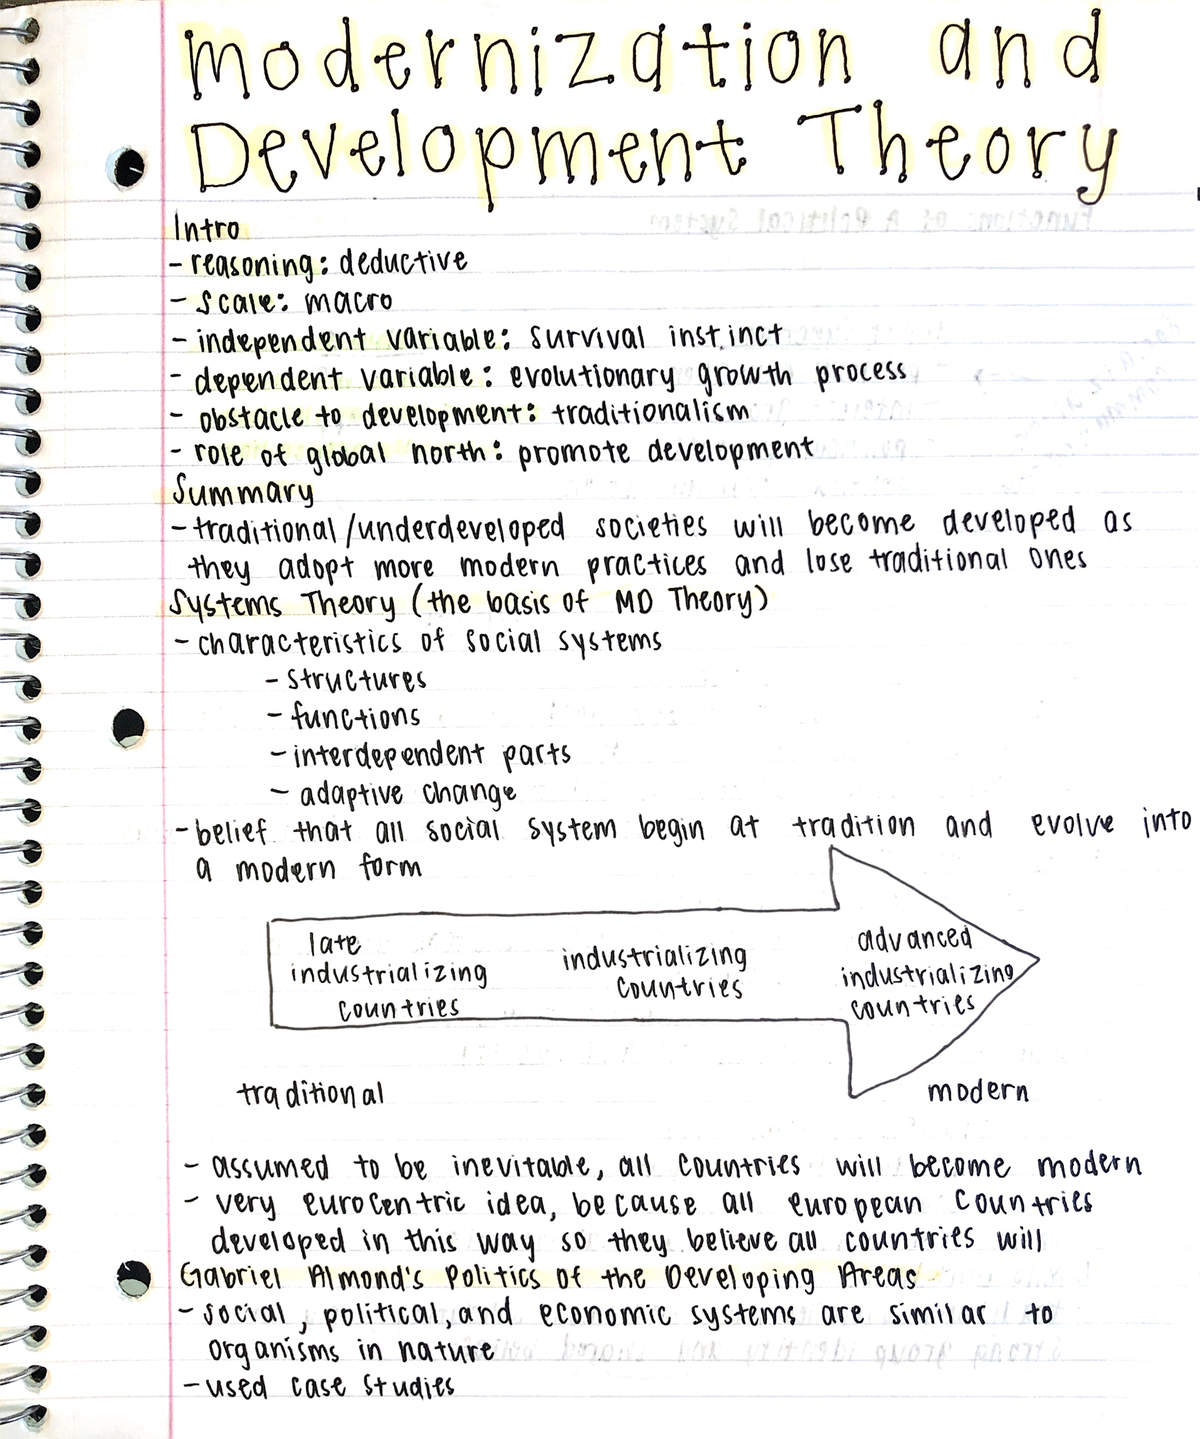 Modernization and
Development Theory
Intro
- reasoning: deductive
- scale: macro
- independent variable: survival instinct
- dependent variable: evolutionary growth process
- obstacle to development: traditionalism
- role of global north: promote development
Summary
- traditional/underdeveloped societies will become developed as
they adopt more modern practices and lose traditional ones
Systems Theory (the basis of MD Theory)
- characteristics of social systems
- structures
- functions
- interdependent parts
- adaptive change
- belief that all social system begin at tradition and evolve into
a modern form
late
industrializing
countries
industrializing
countries
advanced
industrializing
countries
traditional
modern
- assumed to be inevitable, all countries will become modern
- very eurocentric idea, because all european countries
developed in this way so they believe all countries will
Gabriel Almond's Politics of the Developing Areas
- social, political, and economic systems are similar to
organisms in nature
- used case studies